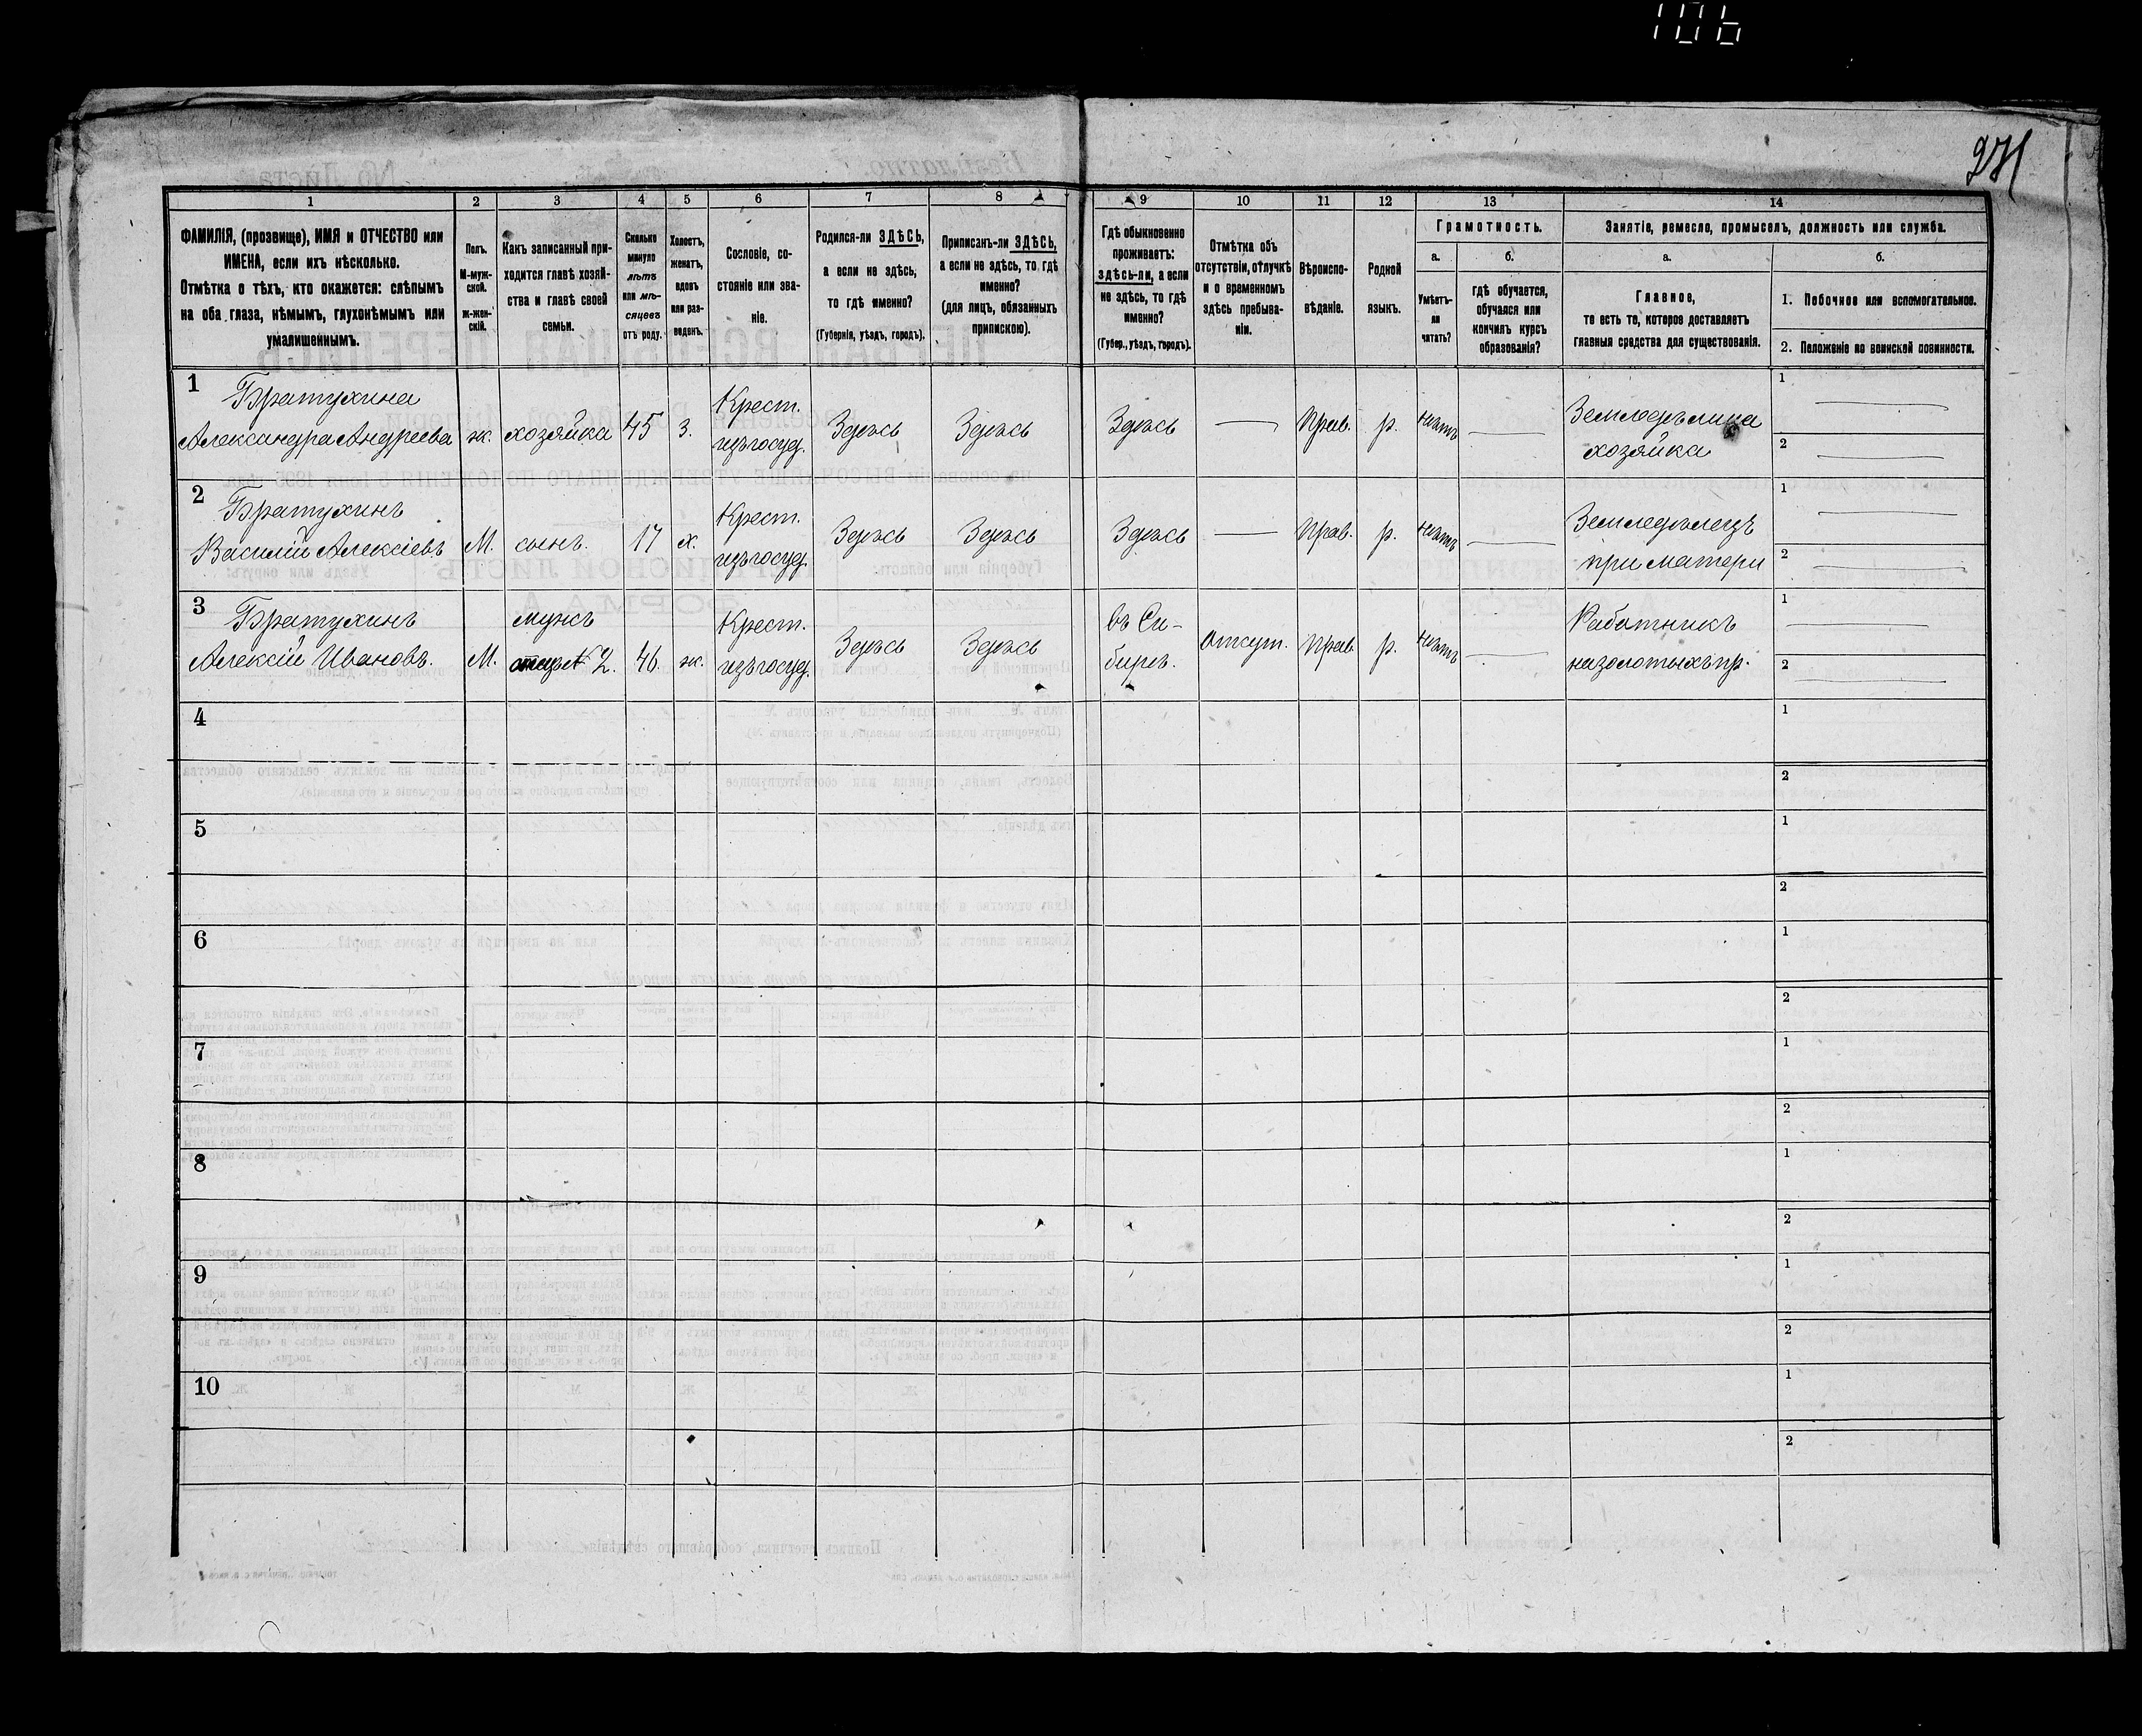 106
271
1 2 3 4 5 6 7 8 9 10 11 12 13 14
ФАМИЛІЯ, (прозвище), ИМЯ и ОТЧЕСТВО или
ИМЕНА, если ихъ нѣсколько.
Отмѣтка о тѣхъ, кто окажется: слѣпымъ
на оба глаза, нѣмымъ, глухонѣмымъ или
умалишеннымъ.
Полъ.
М-муж-
ской.
ж-жен-
скій.
Какъ записанный при-
ходится главѣ хозяй-
ства и главѣ своей
семьи.
Сколько
минуло
лѣтъ
или мѣ-
сяцевъ
отъ роду.
Холостъ,
женатъ,
вдовъ
или раз-
веденъ.
Сословіе, со-
стояніе или зва-
ніе.
Родился-ли ЗДѢСЬ,
а если не здѣсь,
то гдѣ именно?
(Губернія, уѣздъ, городъ).
Приписанъ-ли ЗДѢСЬ,
а если не здѣсь, то, гдѣ
именно?
(для лицъ, обязанныхъ
припискою).
Гдѣ обыкновенно
проживаетъ:
здѣсь-ли, а если
не здѣсь, то гдѣ
именно?
(Губер., уѣздъ, городъ).
Отмѣтка объ
отсутствіи, отлучкѣ
и о временномъ
здѣсь пребыва-
ніи.
Вѣроиспо-
вѣданіе.
Родной
языкъ.
Грамотность.
а.
Умѣетъ-
ли
читать?
б.
гдѣ обучается,
обучался или
кончилъ курсъ
образованія?
Занятіе, ремесло, промыселъ, должность или служба.
а.
Главное,
то есть то, которое доставляетъ
главныя средства для существованія.
б.
1. Побочное или вспомогательное.
2. Положеніе по воинской повинности.
1 Братухина
Александра Андреева ж. хозяйка 45 З. Крест.
изъ госуд. Здѣсь Здѣсь Здѣсь — Прав. р. нѣтъ — Земледѣлица
хозяйка 1 —
2 —
2 Братухинъ
Василій Алексіевъ М. сынъ. 17 х. Крест.
изъ госуд. Здѣсь Здѣсь Здѣсь — Прав. р. нѣтъ — Земледѣлецъ
при матери 1 —
2 —
3 Братухинъ
Алексій Ивановъ. М. мужъ
отецъ № 2. 46. ж. Крест.
изъ госуд. Здѣсь Здѣсь въ Си-
бирѣ. Отсут. Прав. р. нѣтъ — Работникъ
на золотыхъ пр. 1 —
2 —
4 1
2
5 1
2
6 1
2
7 1
2
8 1
2
9 1
2
10 1
2